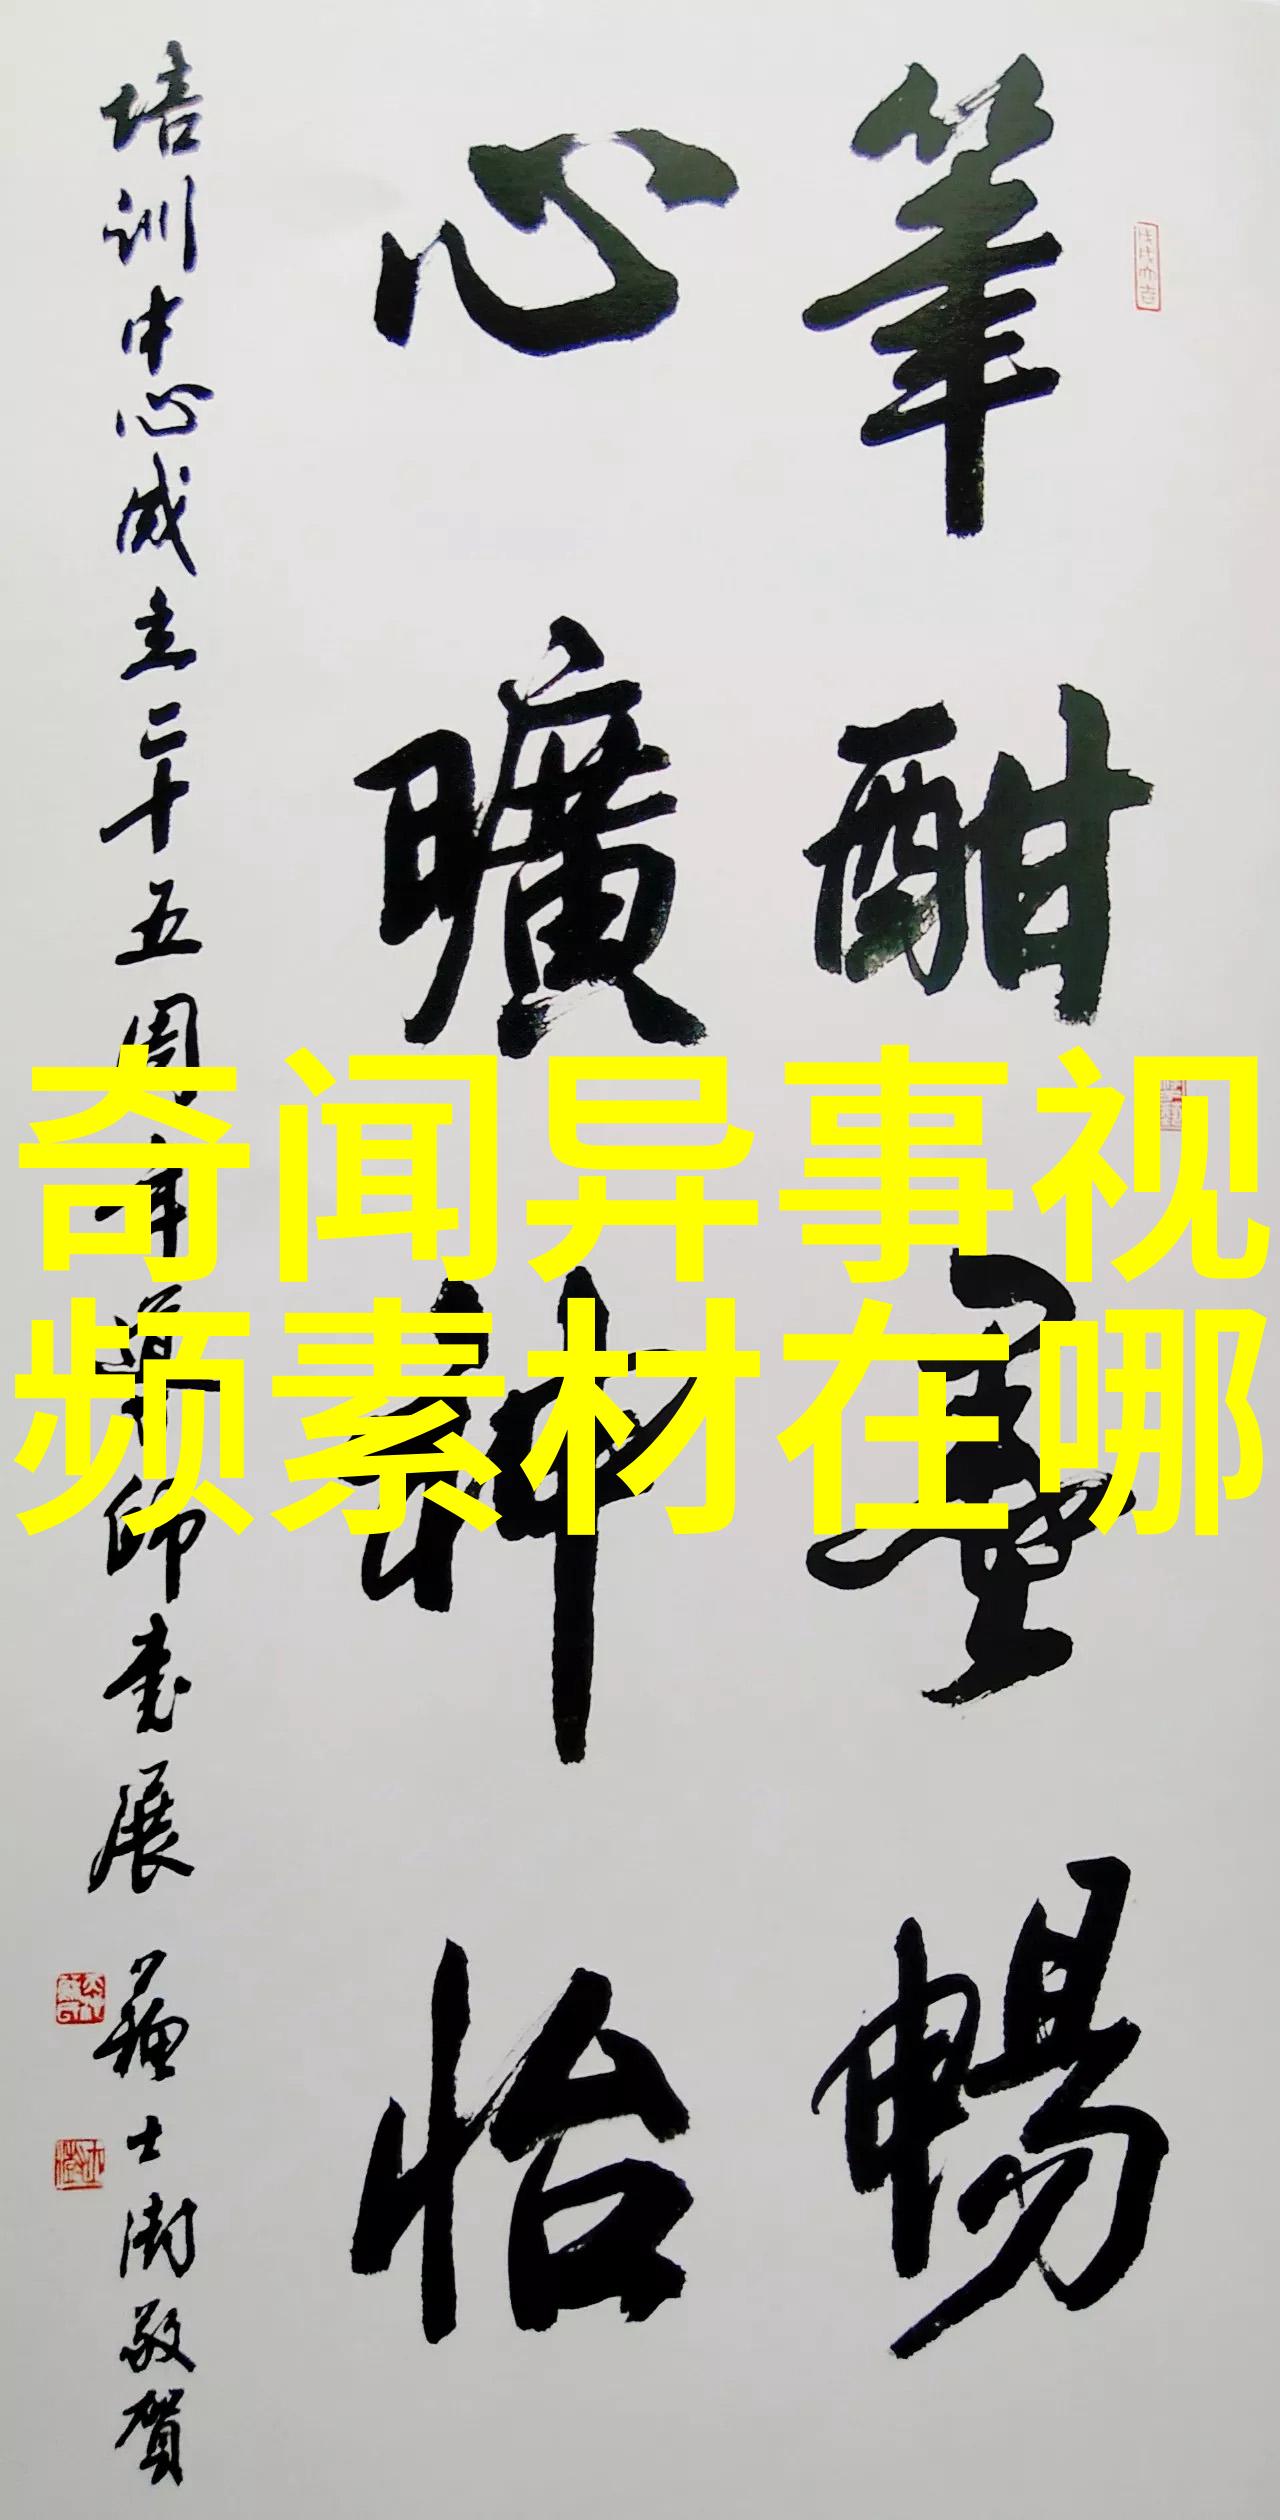 筆酣墨暢
心曠神怡
培训中心成立二十五周年導師书展 苏士澍敬贺
奇闻异事视
频素材在哪